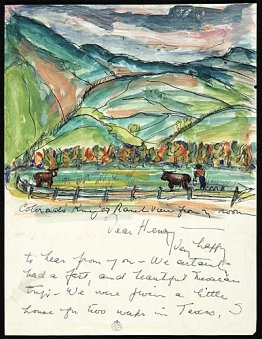 Colorado King's Ranch View from my room
Dear Henry
Very happy
to hear from you - We certainly
had a fast, and beautiful Mexican
trip - We were given a little
house for two weeks in Taxco, S